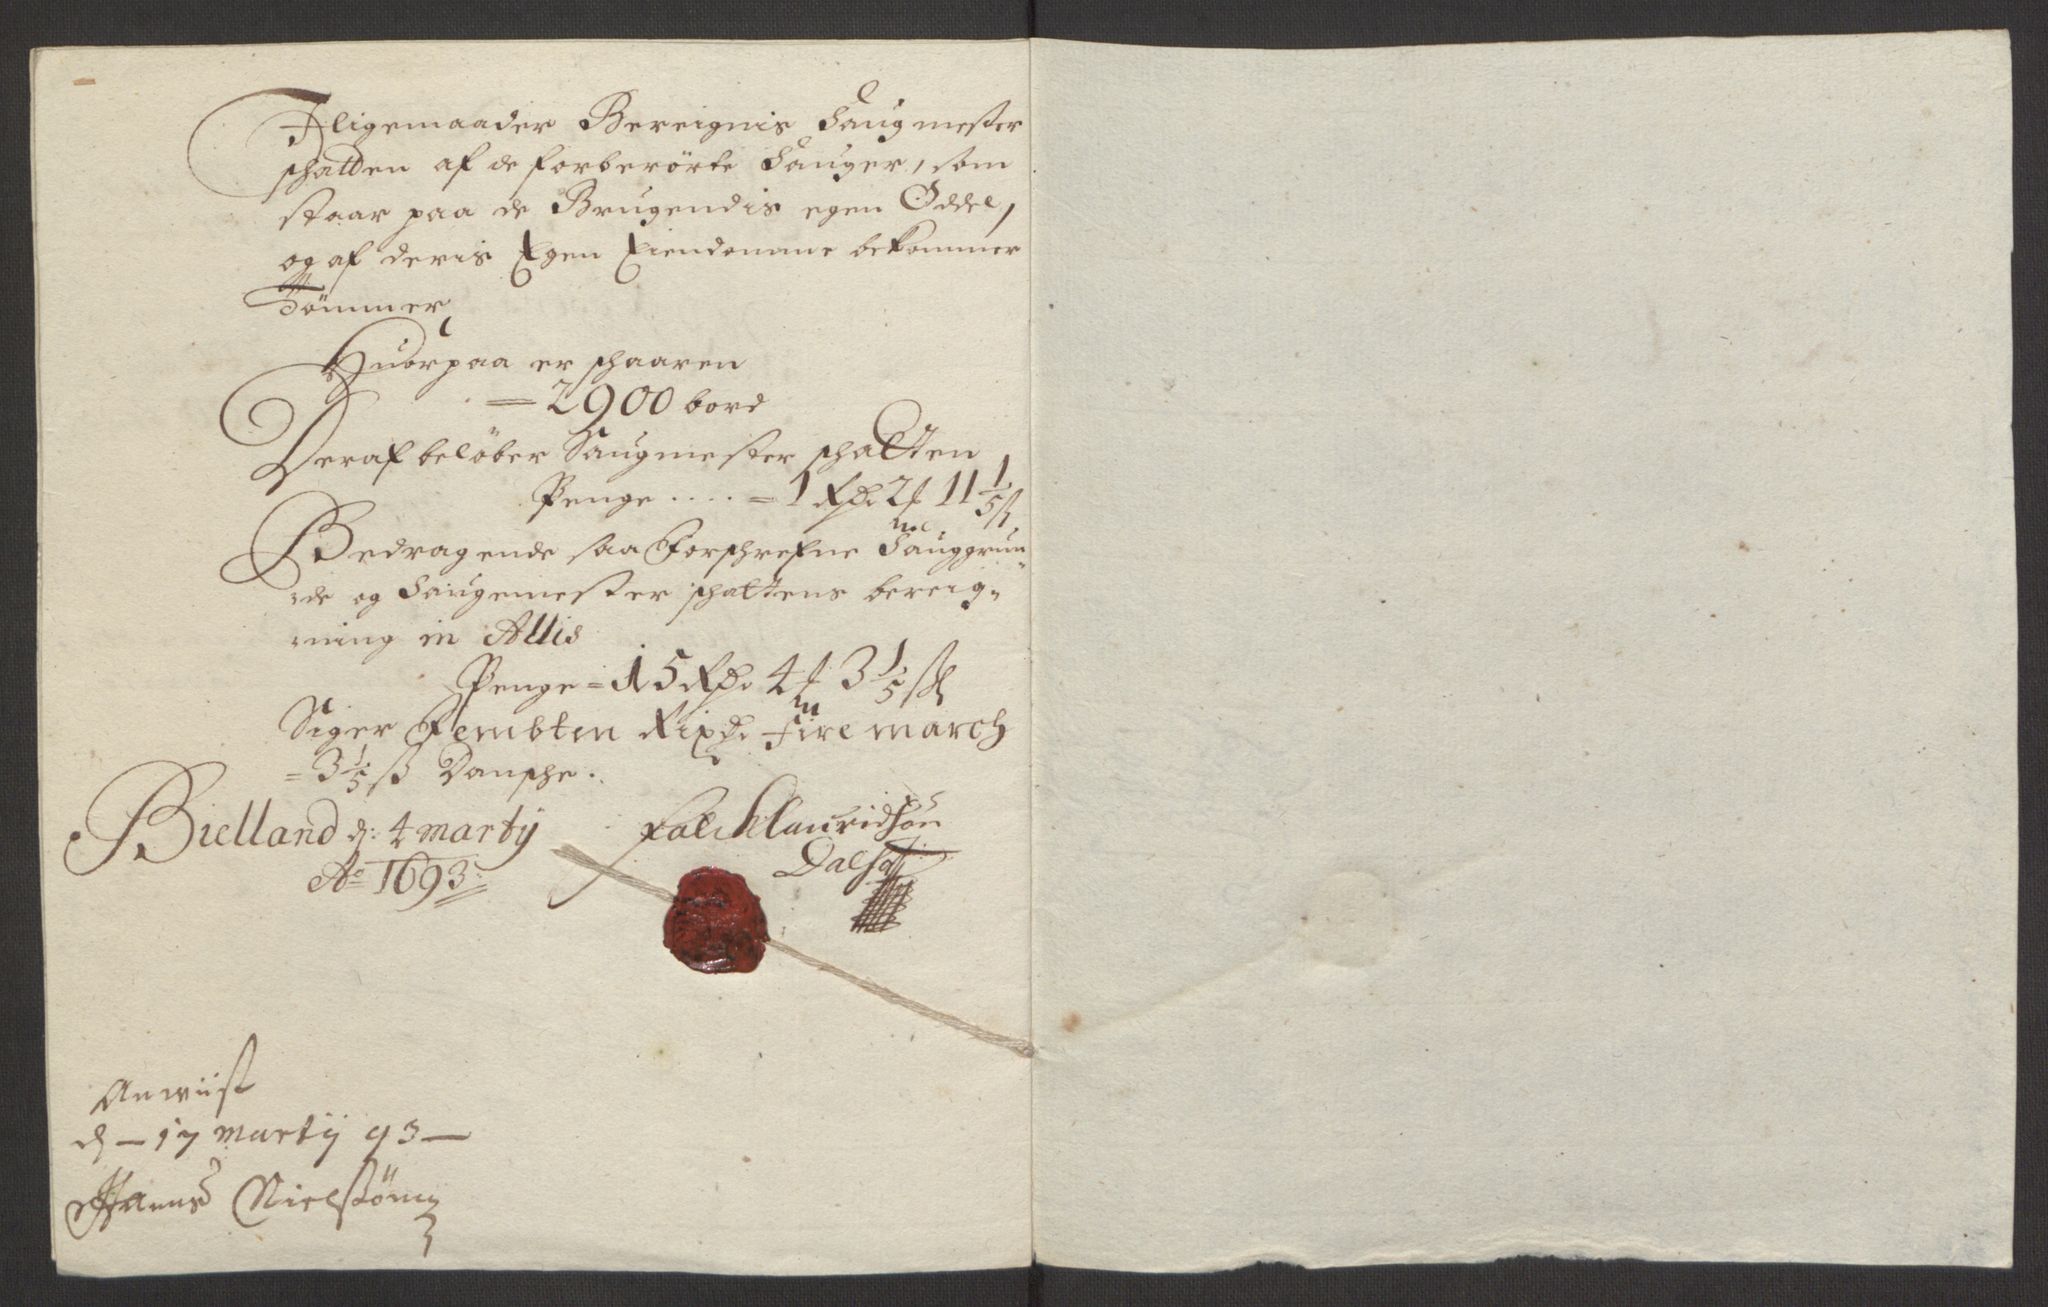 Iligemaader Bereignis Saugmester
schatten af de forberörte Sauger, som
staar paa de Brugendis egen Oddel,
og af deris Egen Eiendomme bekommer
Tömmer,
Huorpaa er schaaren
= 2900 bord
Deraf belöber Saugmester schatten
Penge .... = 1 Rdr 2 11 1/5 ß,
Bedragende saa Forschrefne Sauggrun
nde og Saugemester schattens bereig-
ning in Allis
Penge = 15 Rdr 4 3 1/5 ß
Siger Fembten Rixdr fire march
= 3 1/5 ß Dansche.
Bielland d: 4 martij
Ao 1693
Falch Lauridsön
Anwiist
d — 17 Martij 93 —
Hanns Nielsßön